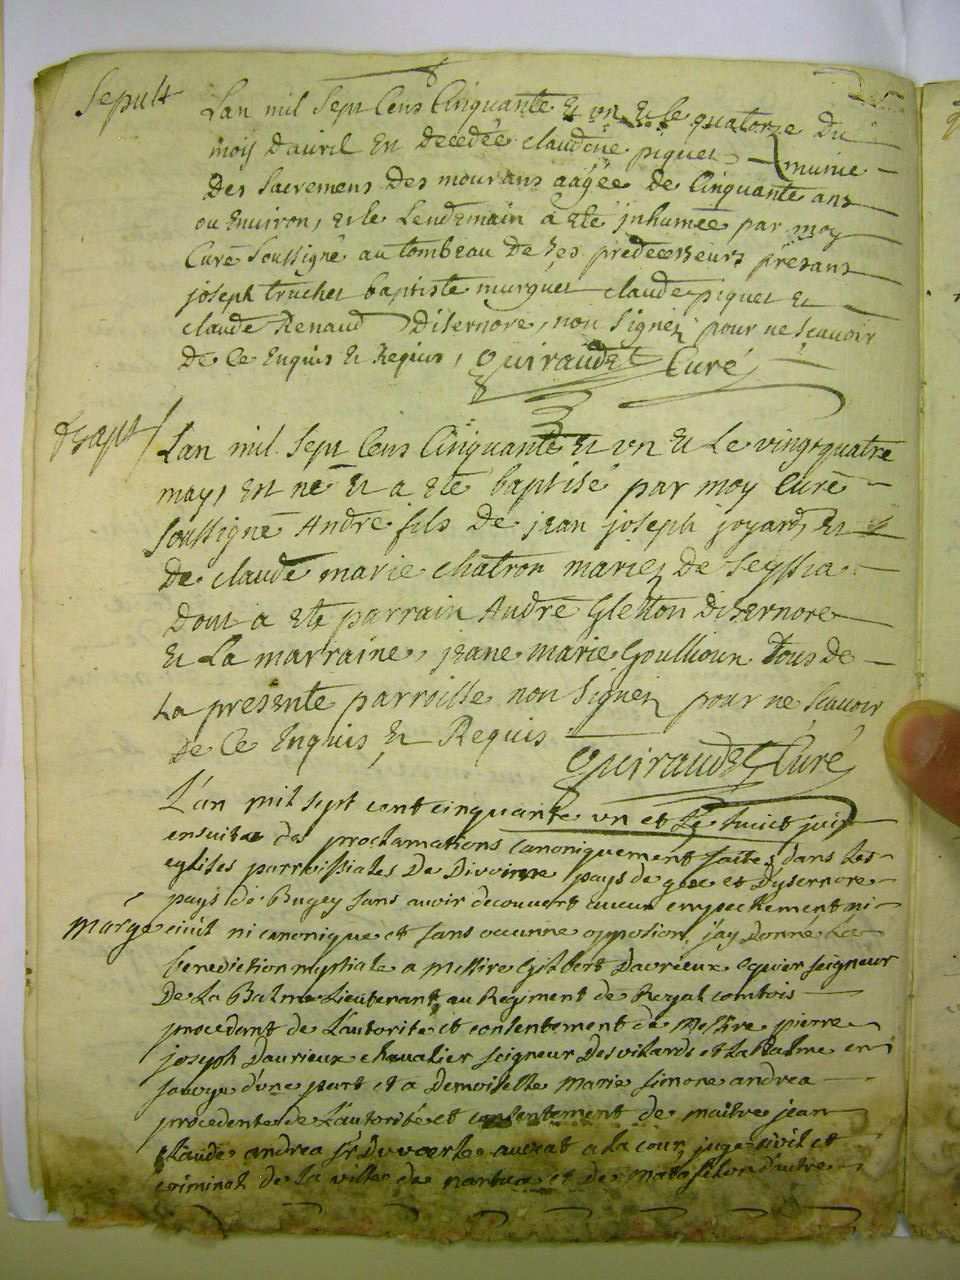 Sepult
Lan mil Sept Cens Cinquante et un et le quatorze du
mois davril est decedée claudine piquet munie
des sacremens des mourans aagée de Cinquante ans
ou environ, et le Lendemain a eté inhumée par moy
Curé Soussigné au tombeau de ses predecesseurs présans
joseph truchet baptiste murguet claude piquet et
claude Renaud disernore, non signez pour ne scavoir
de ce enquis et Requis, Guiraudet Curé
Bapt
Lan mil Sept Cens Cinquante et un et Le vingt quatre
may, est né et a eté baptisé par moy Curé
Soussigné André fils de jean joseph joyard, et
de claude marie chatron mariez de Seyssia
dont a eté parrain André Gletton disernore
et La marraine, jeane marie Goullioux tous de
La presente parroisse non signez pour ne scavoir
de ce enquis et Requis
Guiraudet Curé
L'an mil sept cent cinquante un et Le huict juin
ensuitte des proclamations canoniquement faites dans les
eglises parroissiales de Divonne pays de gex et d'ysernore
pays de Bugey sans avoir decouvert aucun empechement ni
mariage
civil ni canonique et sans aucunne opposion, j'ay donné La
benediction nuptiale a Messire Gilbert Davrieux ecuier seigneur
De La Balme Lieutenant au Regiment de Royal comtois
procedant de L'autorité et consentement de Messire pierre
joseph Daurieux chevalier seigneur des vilards et La Balme en
savoye d'une part et a Demoiselle Marie Simone andrea
procedente de L'autorité et consentement de maitre jean
Claude andrea Sr avocat a la cour, juge civil et
criminel de La ville de nantua et de Matafelon d'autre